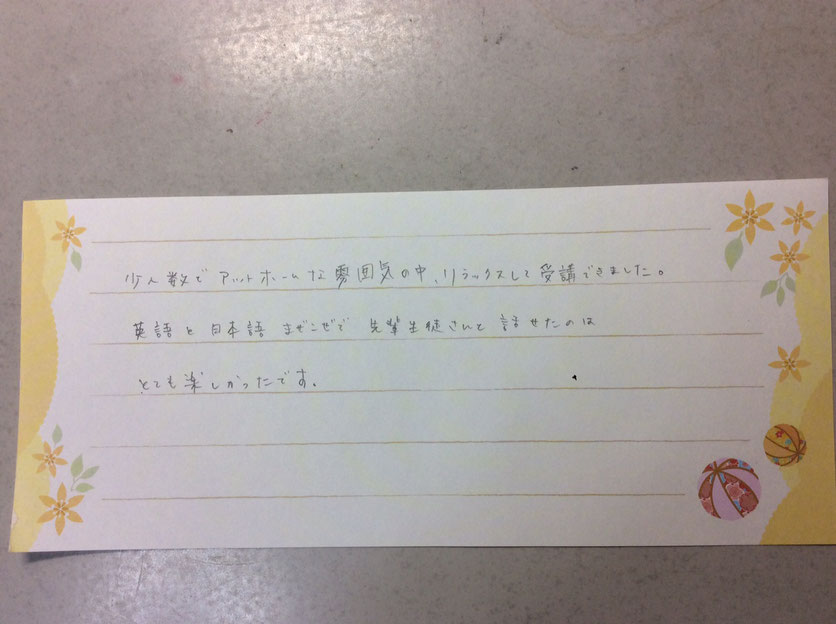 少人数でアットホームな雰囲気の中、リラックスして受講できました。
英語と日本語まぜこぜで先輩生徒さんと話せたのは
とても楽しかったです。